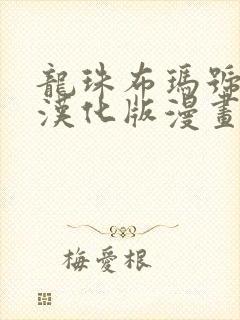 龍珠布瑪號
漢化版漫畫
梅愛根